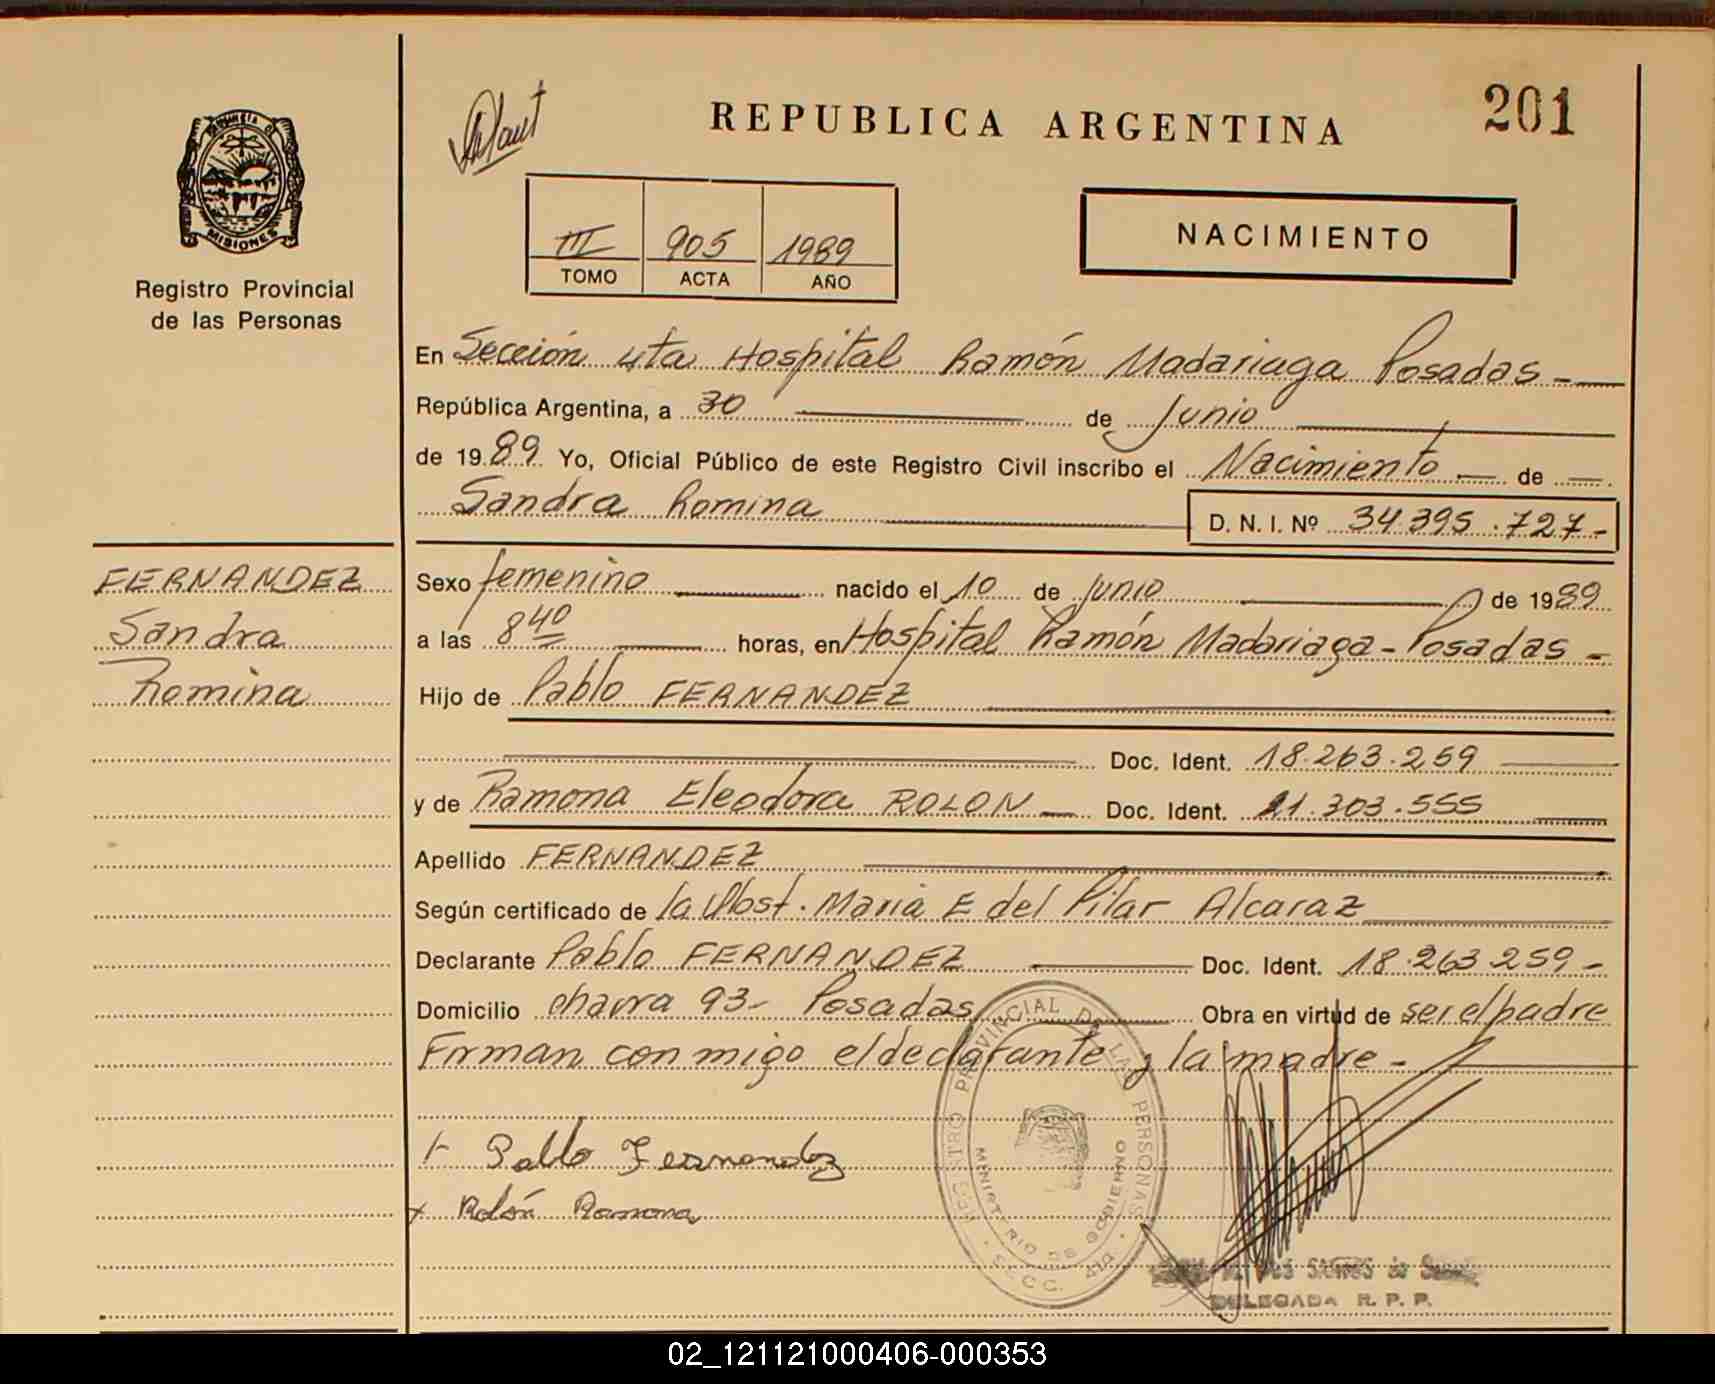 201
REPUBLICA ARGENTINA
Provincia de
MISIONES
Registro Provincial
de las Personas
III 905 1989
TOMO ACTA AÑO
NACIMIENTO
En Sección 4ta Hospital Ramón Madariaga Posadas -
República Argentina, a 30 de Junio
de 1989 Yo, Oficial Público de este Registro Civil inscribo el Nacimiento de
Sandra Romina D. N. I. Nº 34.395.727-
FERNANDEZ
Sandra
Romina
Sexo femenino nacido el 10 de junio de 1989
a las 8 40 horas, en Hospital Ramón Madariaga - Posadas -
Hijo de Pablo FERNANDEZ
Doc. Ident. 18.263.259
y de Ramona Eleodora ROLON Doc. Ident. 21.303.555
Apellido FERNANDEZ
Según certificado de la Obst. Maria E del Pilar Alcaraz
Declarante Pablo FERNANDEZ Doc. Ident. 18.263.259 -
Domicilio chacra 93- Posadas Obra en virtud de ser el padre
Firman con migo el declarante y la madre -
Pablo Fernandez
x Rolón Ramona
REGISTRO PROVINCIAL DE LAS PERSONAS
MINISTERIO DE GOBIERNO
SECC. 4ta.
DELEGADA R. P. P.
02_121121000406-000353